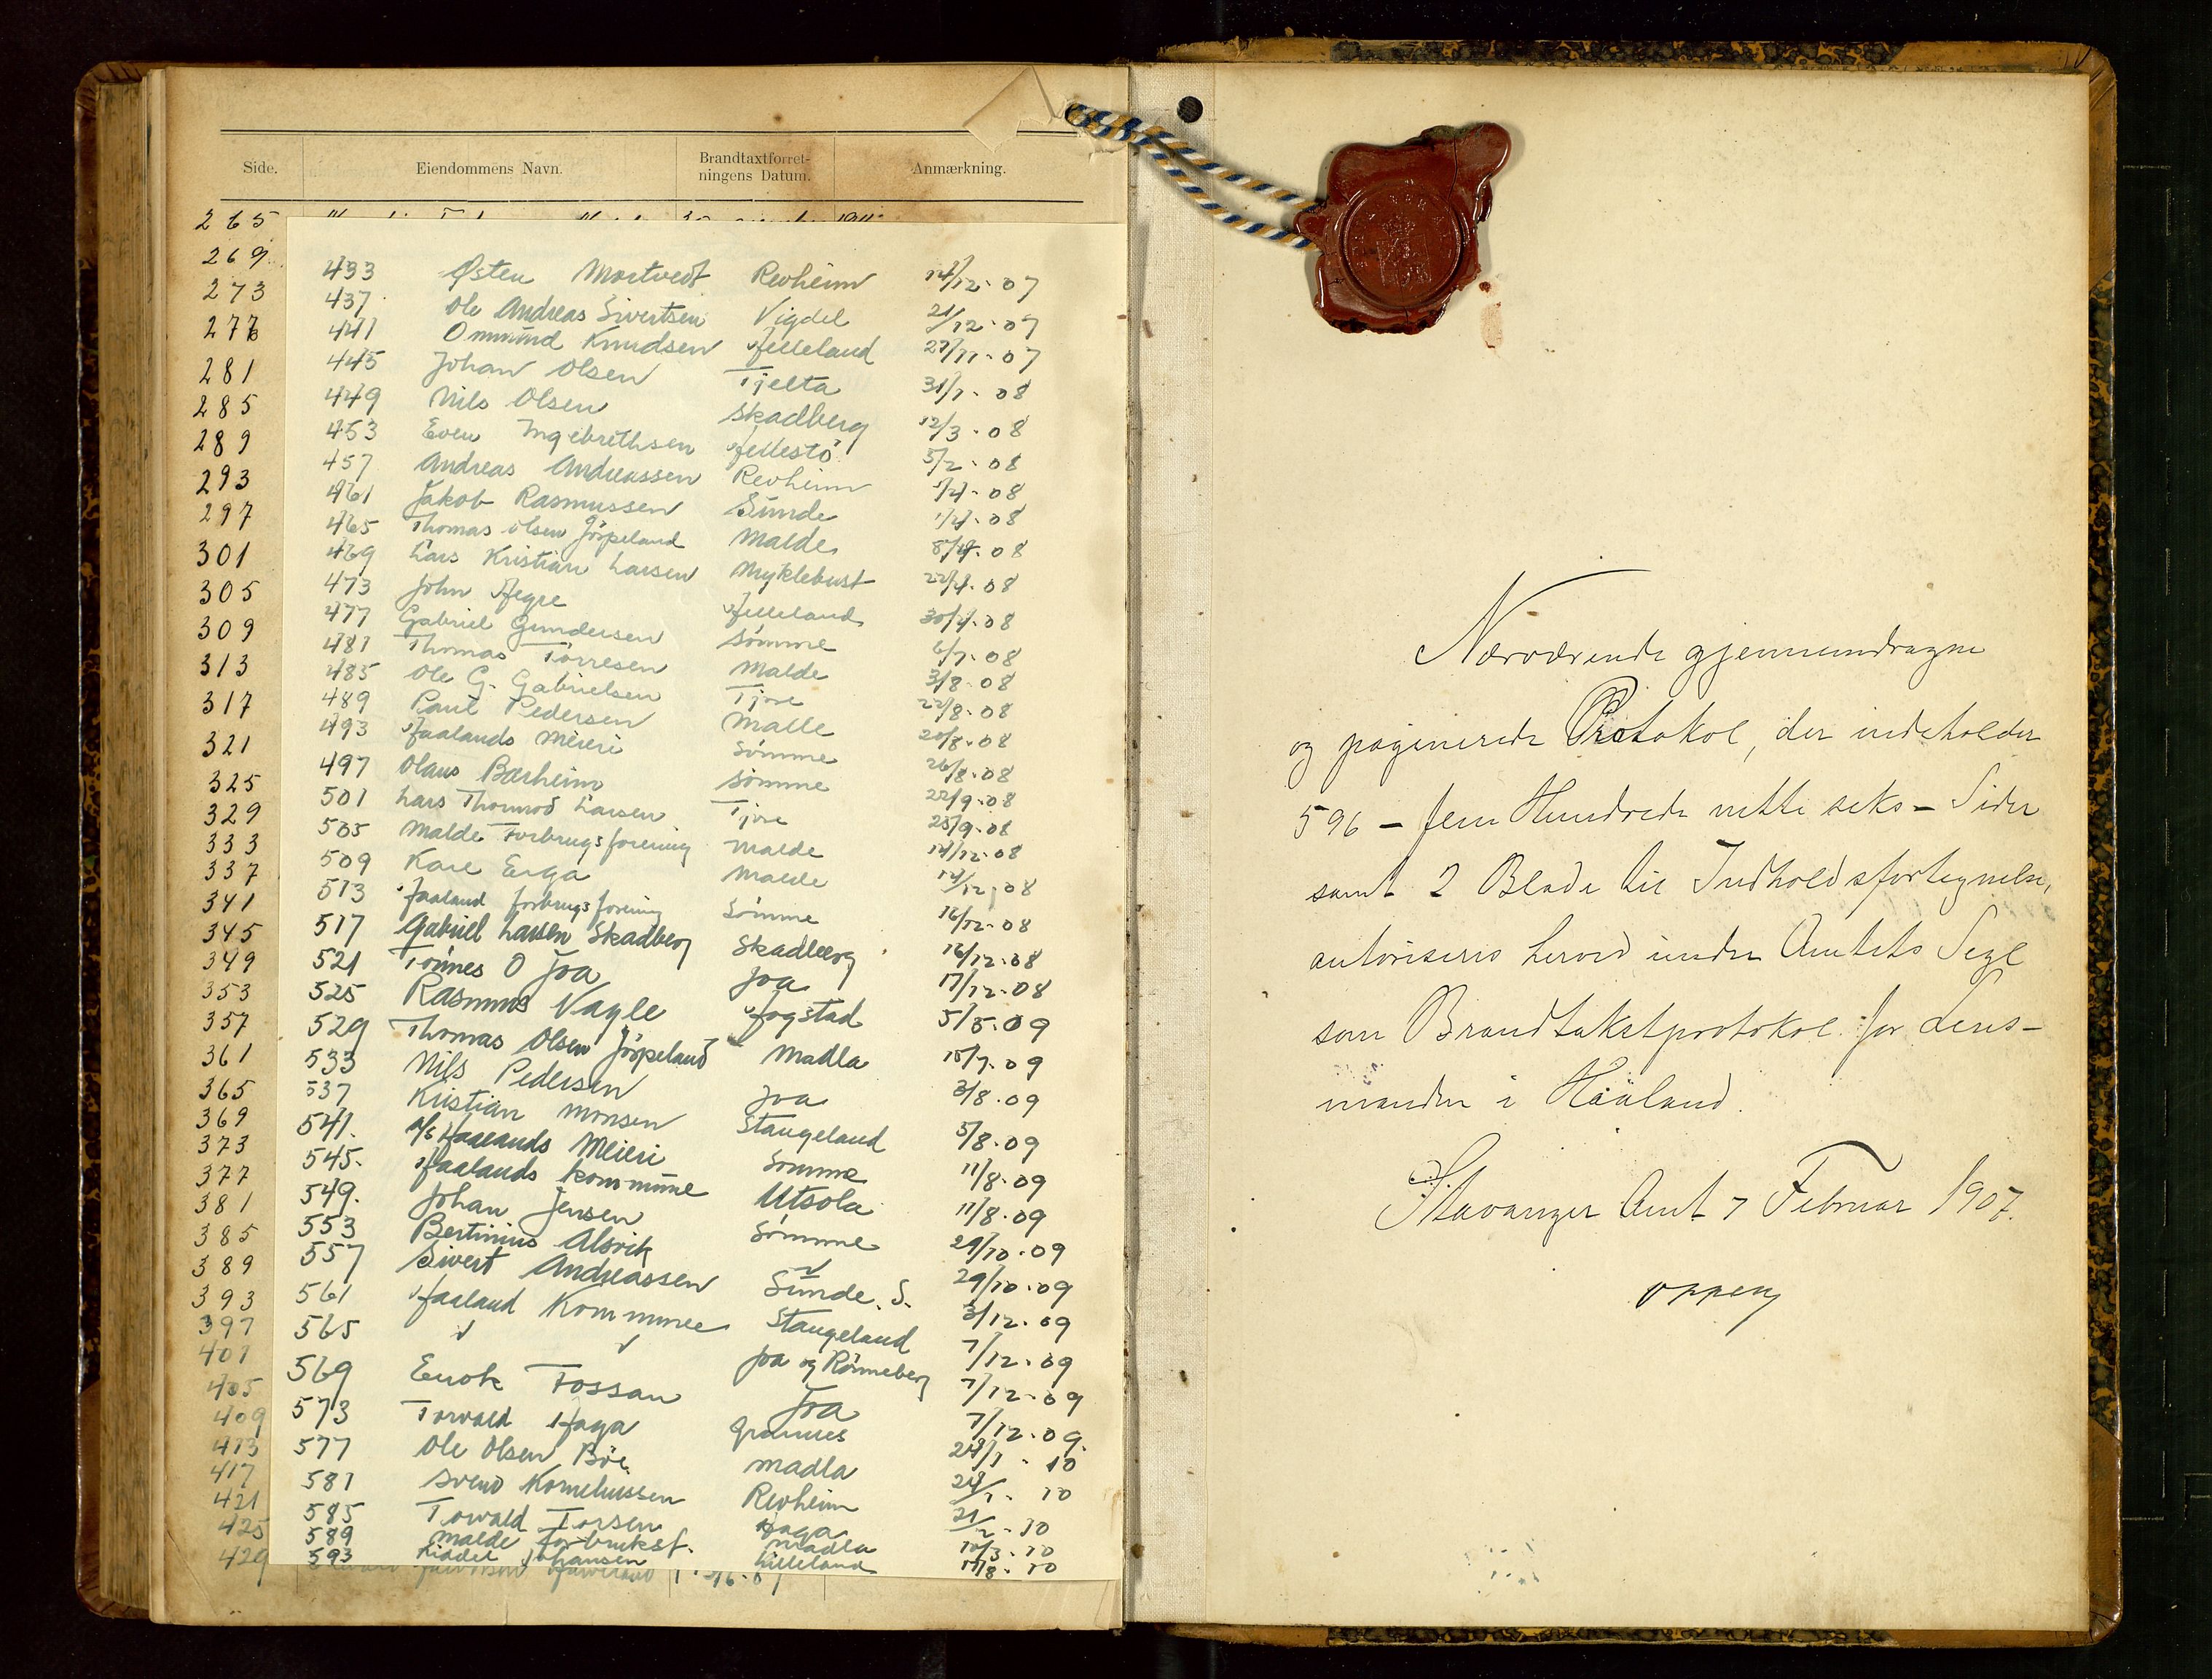 Side. Eiendommens Navn. Brandtaxtforret-
ningens Datum. Anmærkning.
265
269
273
277
281
285
289
293
297
301
305
309
313
317
321
325
329
333
337
341
345
349
353
357
361
365
369
373
377
381
385
389
393
397
401
405
409
413
417
421
425
429
433 Østen Mortvedt Revheim 14/12.07
437. Ole Andreas Sivertsen Vigdel 21/12.07
441 Ommund Knudsen Helleland 27/11.07
445 Johan Olsen Tjelta 31/1.08
449 Nils Olsen Skadberg 12/3.08
453 Even Ingebrethsen Hellestö 5/2.08
457 Andreas Andreassen Revheim 1/4.08
461 Jakob Rasmussen Sunde 1/4.08
465 Thomas Olsen Jörpeland Malde 8/4.08
469 Lars Kristian Larsen Myklebust 22/4.08
473 John Hegre Helleland 30/4.08
477 Gabriel Gundersen Sömme 6/7.08
481 Thomas Törresen Malde 3/8.08
485 Ole G. Gabrielsen Tjore 22/8.08
489 Paul Pedersen Malle 20/8.08
493 Haalands Meieri Sömme 26/8.08
497 Olaus Barheim Sömme 22/9.08
501 Lars Thormod Larsen Tjore 25/9.08
505 Malde Forbrugsforening Malde 14/12.08
509 Karl Erga Malde 14/12.08
513 Haaland forbrugsforening Sömme 16/12.08
517 Gabriel Larsen Skadberg Skadberg 16/12.08
521 Tönnes O Joa Joa 17/12.08
525 Rasmus Vagle Hogstad 5/5.09
529 Thomas Olsen Jörpeland Madla 15/7.09
533 Nils Pedersen Joa 3/8.09
537 Kristian Monsen Stangeland 5/8.09
541. A/S Haalands Meieri Sömme 11/8.09
545. Haalands kommune Utsola 11/8.09
549. Johan Jensen Sömme 29/10.09
553 Bertinius Alsvik 29/10.09
557 Sivert Andreassen Sunde. S. 3/12.09
561 Haaland Kommune Stangeland 7/12.09
565 Joa og Rönneberg 7/12.09
569 Enok Fossan Joa 7/12.09.
573 Torvald Haga Grannes 28/1.10
577 Ole Olsen Böe Madla 28/1.10
581 Svend Korneliussen Revheim 21/2.10
585 Torvald Torsen Haga
589 Malde forbruksf. Madla 10/3.10
593 Johansen Lilleland 11/8.10
Nærværende gjennemdragne
og paginerede Protokol, der indeholder
596 – fem Hundrede nitti seks – Sider
samt 2 Blade til Indholdsfortegnelse,
autoriseres herved under Amtets Segl
som Brandtakstprotokol for Lens-
manden i Håaland.
Stavanger Amt 7 Februar 1907.